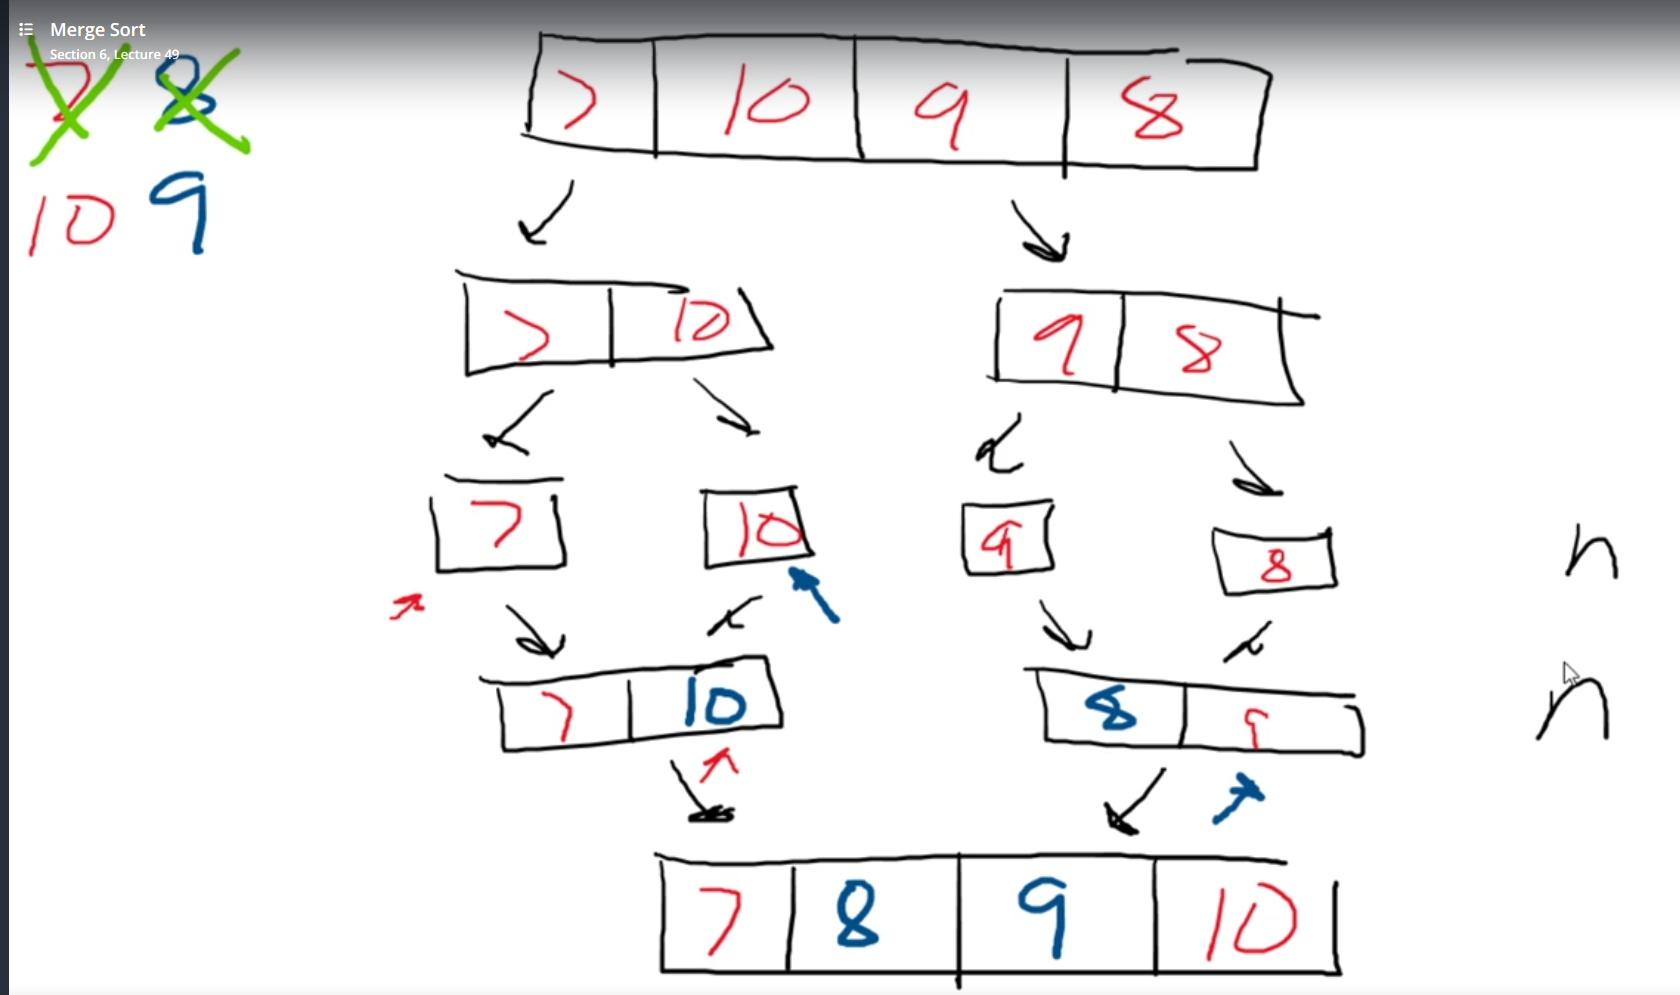 Merge Sort
Section 6, Lecture 49
7 8
10 9
7 10 9 8
7 10 9 8
7 10 9 8 n
7 10 8 9 n
7 8 9 10